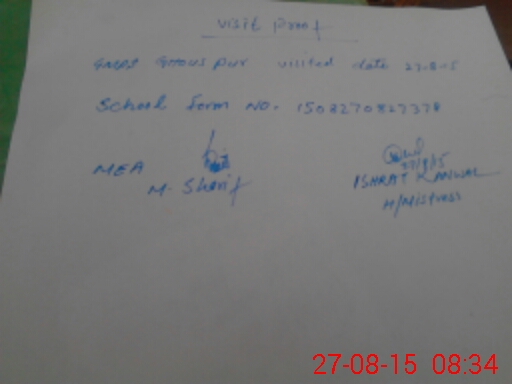 Visit Proof
GMPS GHOUS Pur visited date 27-8-15
School form No. 1508270827378
MEA
M. Sharif
27/8/15
ISHRAT KANWAL
H/Mistress
27-08-15 08:34